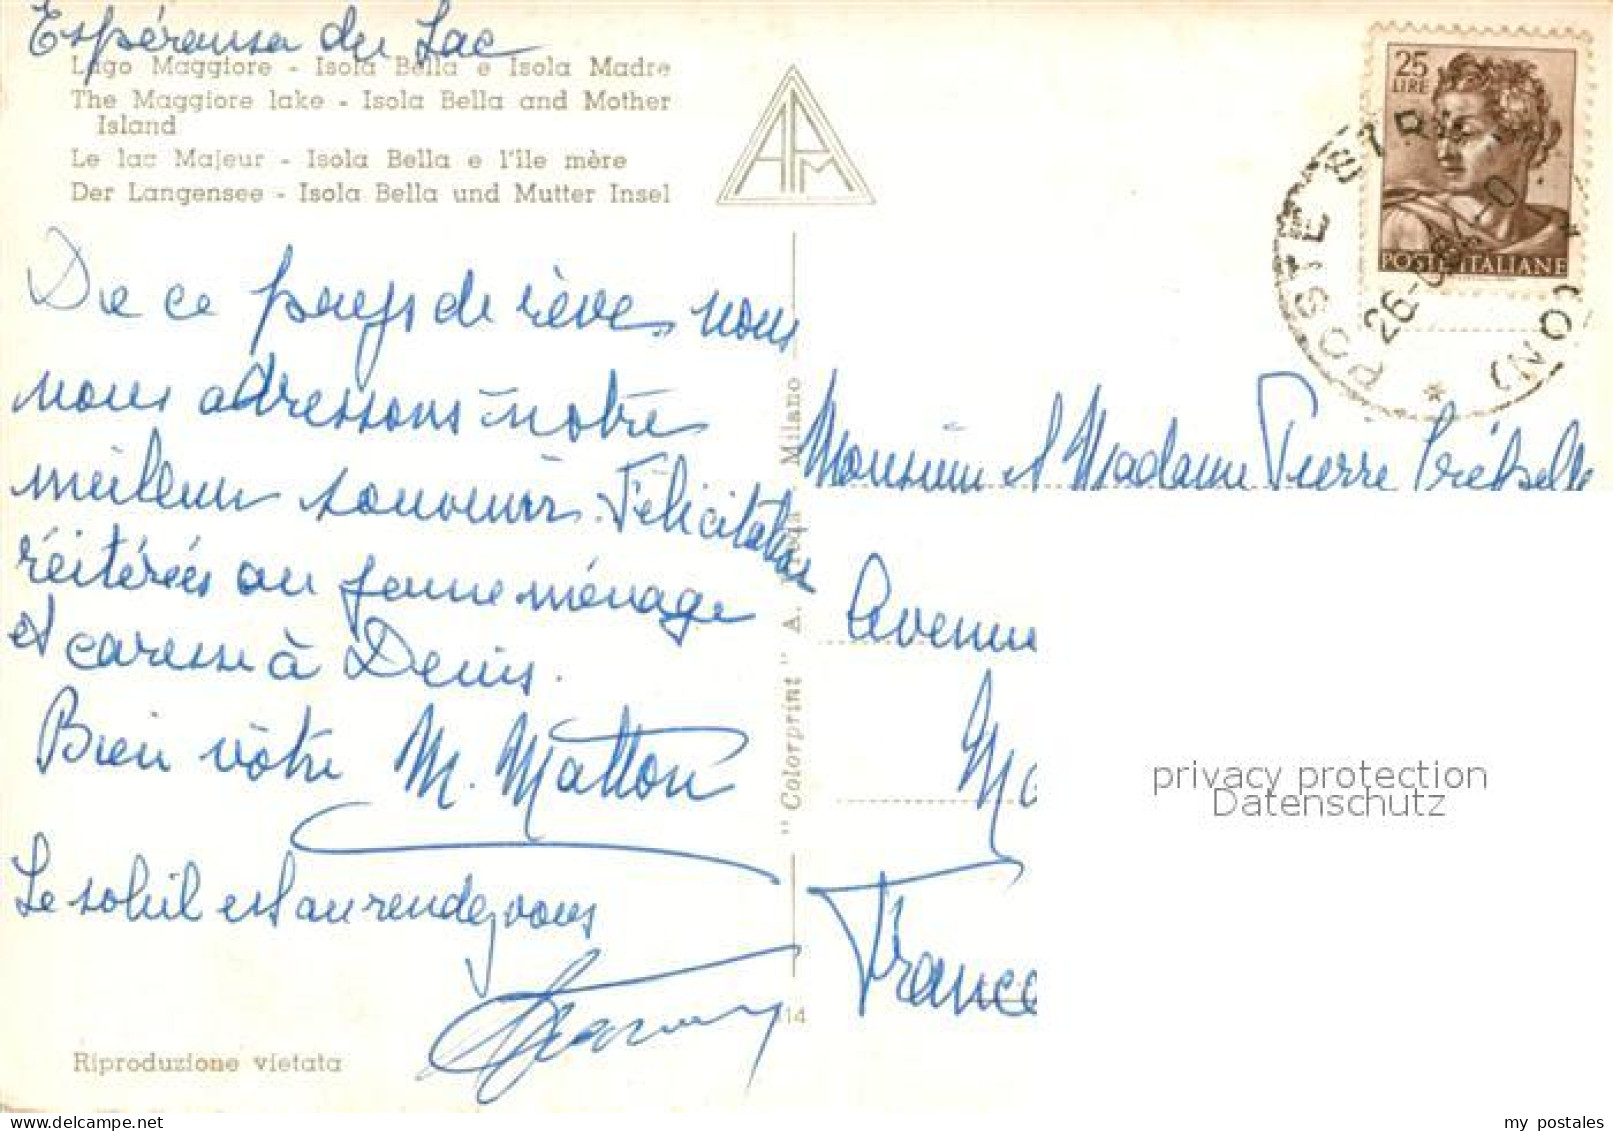 Espéransa du Lac
Lago Maggiore - Isola Bella e Isola Madre
The Maggiore lake - Isola Bella and Mother
Island
Le lac Majeur - Isola Bella e l'île mère
Der Langensee - Isola Bella und Mutter Insel
APM
25
LIRE
POSTE ITALIANE
POSTE STR
26-
(NO)
De ce pays de rêves nous
nous adressons notre
meilleur souvenir. Félicitations
réitérées au jeune ménage
et caresse à Denis.
Bien vôtre M. Matton
Le soleil est au rendez vous
Monsieur et Madame Pierre
Avenue
France
"Colorprint" A. Milano
14
Riproduzione vietata
privacy protection
Datenschutz
delcampe.net
my postales